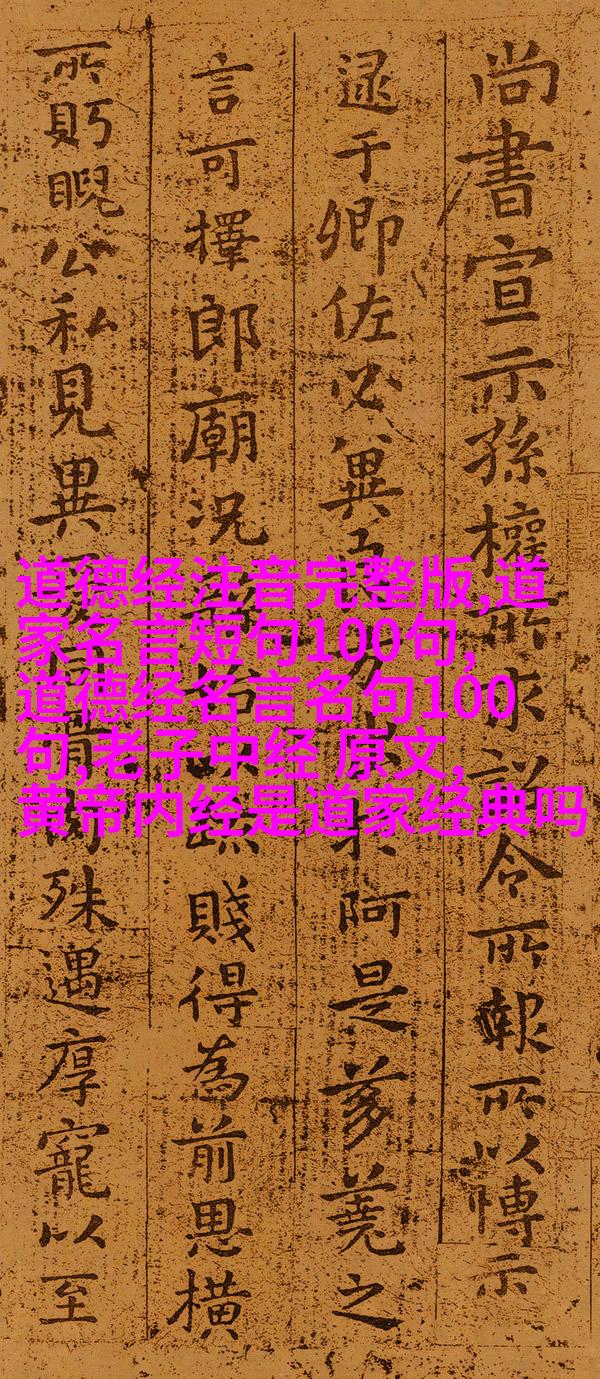 尚書宣示孫權所求詔令所報所以博示
逮于卿佐必冀良方出於阿是芻蕘之
言可擇郎廟況繇始以疏賤得為前恩橫
所眄睨公私見異愛同骨肉殊遇厚寵以至
道德经注音完整版,道
家名言短句100句,
道德经名言名句100
句,老子中经 原文,
黄帝内经是道家经典吗